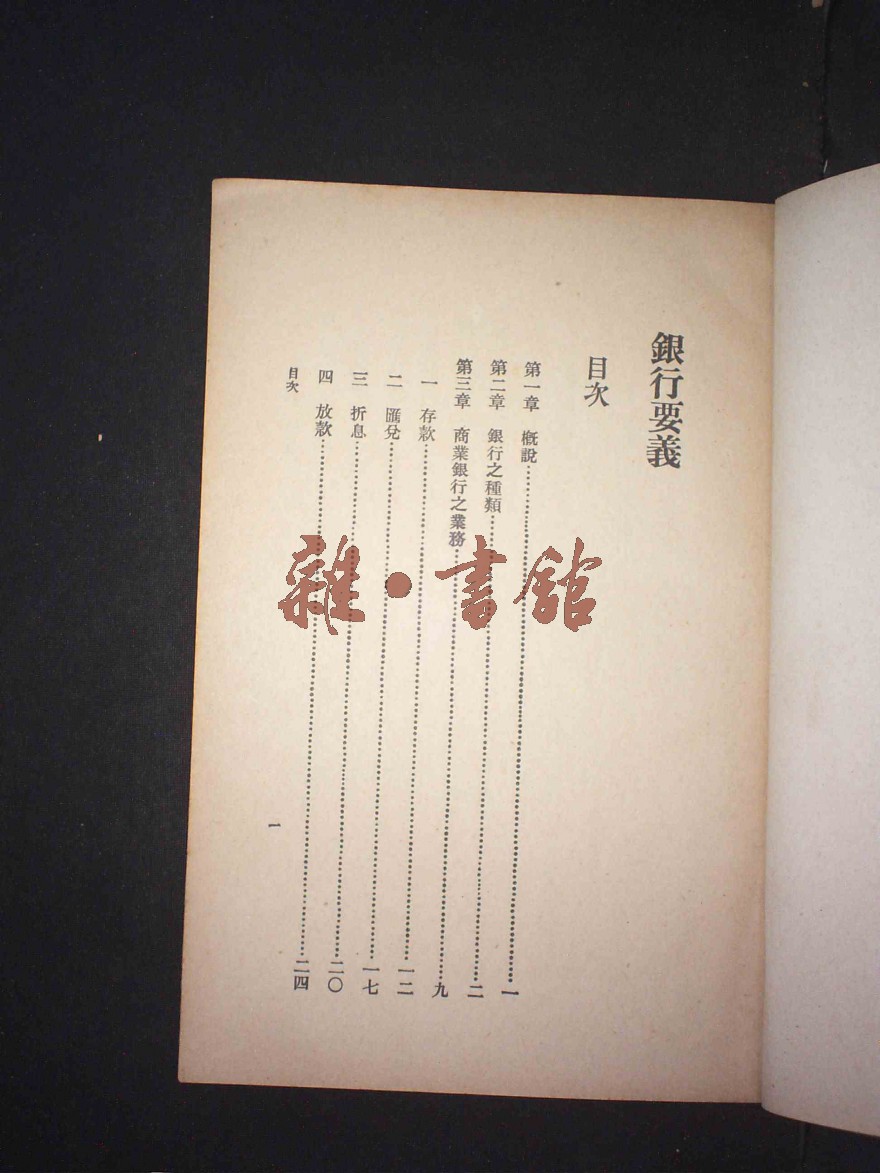 銀行要義
目次
第一章 概說……一
第二章 銀行之種類……二
第三章 商業銀行之業務……九
一 存款……一二
二 匯兌……一七
三 折息……二〇
四 放款……二四
目次 一
雜·書館